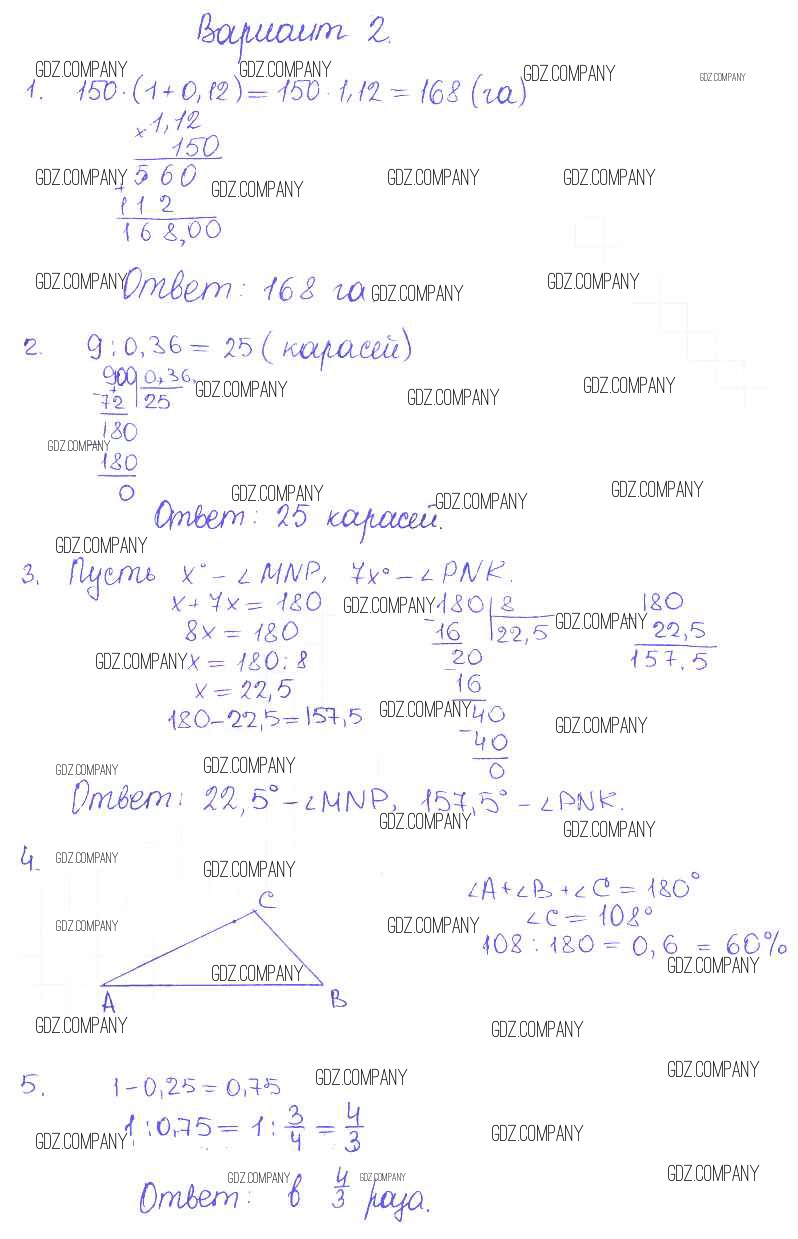 Вариант 2.
GDZ.COMPANY GDZ.COMPANY GDZ.COMPANY GDZ.COMPANY
1. 150·(1+0,12)=150·1,12=168(га)
×1,12
150
GDZ.COMPANY 560 GDZ.COMPANY GDZ.COMPANY GDZ.COMPANY
+112
168,00
GDZ.COMPANY Ответ: 168 га GDZ.COMPANY GDZ.COMPANY
2. 9:0,36=25(карасей)
900 0,36. GDZ.COMPANY GDZ.COMPANY GDZ.COMPANY
-72 25
180
GDZ.COMPANY
180
0 GDZ.COMPANY GDZ.COMPANY GDZ.COMPANY
Ответ: 25 карасей.
GDZ.COMPANY
3. Пусть x° - ∠MNP, 7x° - ∠PNK.
x+7x=180 GDZ.COMPANY 180 8 180
8x=180 -16 22,5 GDZ.COMPANY - 22,5
GDZ.COMPANY x=180:8 20 157,5
x=22,5 16
180-22,5=157,5 GDZ.COMPANY 40 GDZ.COMPANY
-40
GDZ.COMPANY GDZ.COMPANY 0
Ответ: 22,5° - ∠MNP, 157,5° - ∠PNK.
GDZ.COMPANY GDZ.COMPANY
4. GDZ.COMPANY GDZ.COMPANY
C ∠A+∠B+∠C=180°
GDZ.COMPANY GDZ.COMPANY ∠C=108°
108:180=0,6=60%
GDZ.COMPANY GDZ.COMPANY
A B
GDZ.COMPANY GDZ.COMPANY
5. 1-0,25=0,75 GDZ.COMPANY GDZ.COMPANY
1:0,75=1:3/4=4/3
GDZ.COMPANY GDZ.COMPANY
GDZ.COMPANY GDZ.COMPANY GDZ.COMPANY
Ответ: в 4/3 раза.